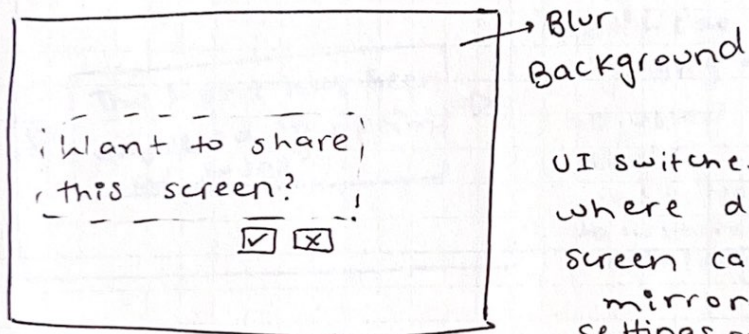 Blur
Background
Want to share
this screen?
UI
where
screen
mirror
settings